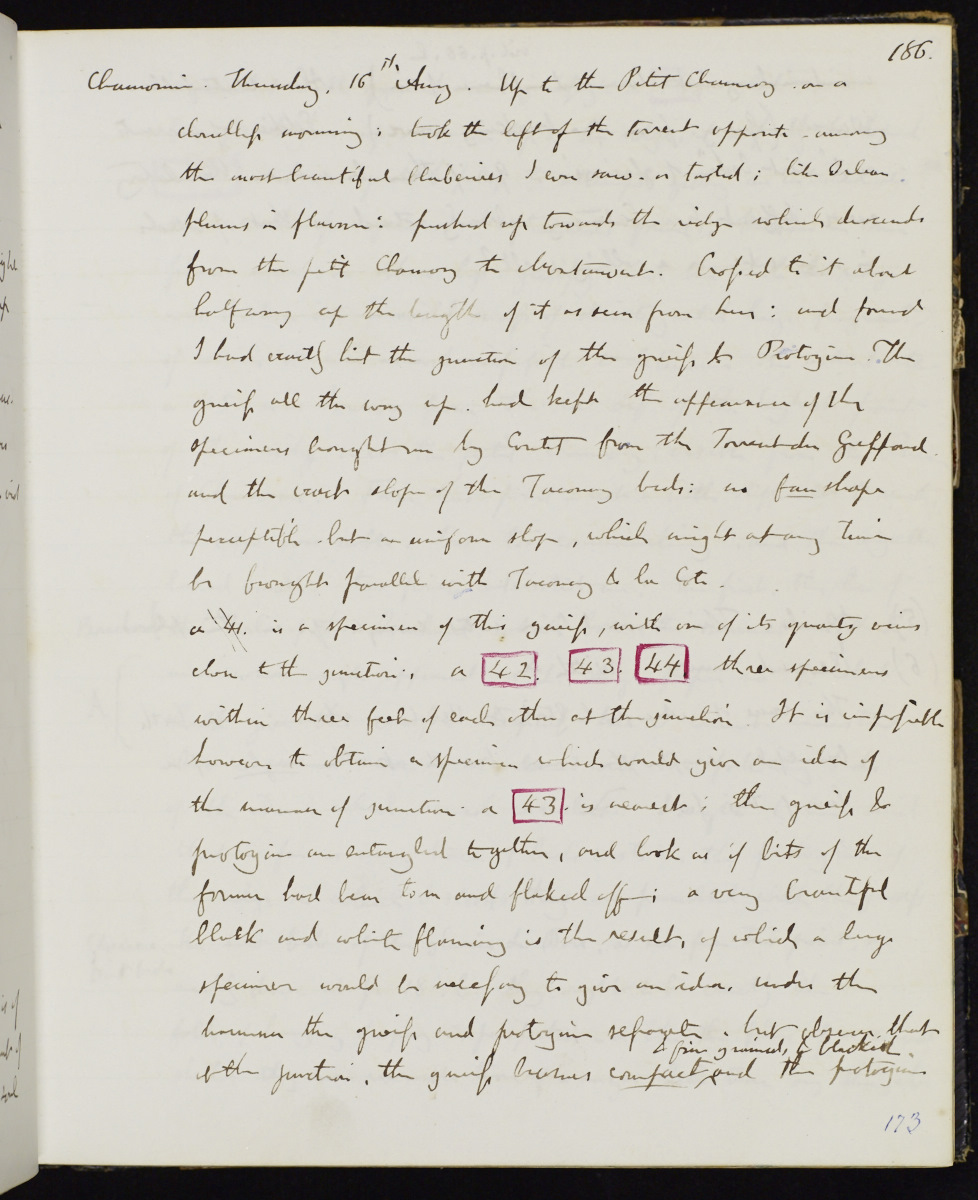 186.
Chamouni. Thursday, 16th Aug. Up to the Petit Chamouny on a
cloudless morning; took the left of the torrent opposite among
the most beautiful bluberries I ever saw or tasted; like Orlean
plums in flavour: pushed up towards the ridge which descends
from the petit Chamony to Montanvert. Crossed to it about
halfway up the length of it as seen from here: and found
I had exactly hit the junction of the gneiss & Protogine. The
gneiss all the way up. had kept the appearance of the
specimens brought me by Coutet from the Torrent du Greppond.
and the exact slope of the Taconay beds: no fan shape
perceptible but an uniform slope, which might at any time
be brought parallel with Taconay & la Cote.
a 41. is a specimen of this gneiss, with one of its quartz veins
close to the junction; a 42. 43. 44 three specimens
within three feet of each other at the junction. It is impossible
however to obtain a specimen which would give an idea of
the manner of junction. a 43. is nearest; the gneiss &
protogine are entangled together, and look as if bits of the
former had been torn and flaked off; a very beautiful
black and white flaming is the result, of which a large
specimen would be necessary to give an idea. under the
hammer the gneiss and protogine separate. but observe that
& fine grained, & blackish.
at the junction, the gneiss becomes compact and the protogine
173